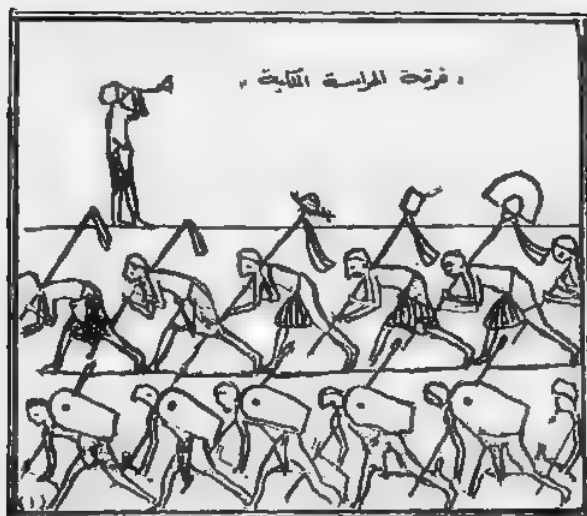 « فرقة الحراسة الملكية »
(١)